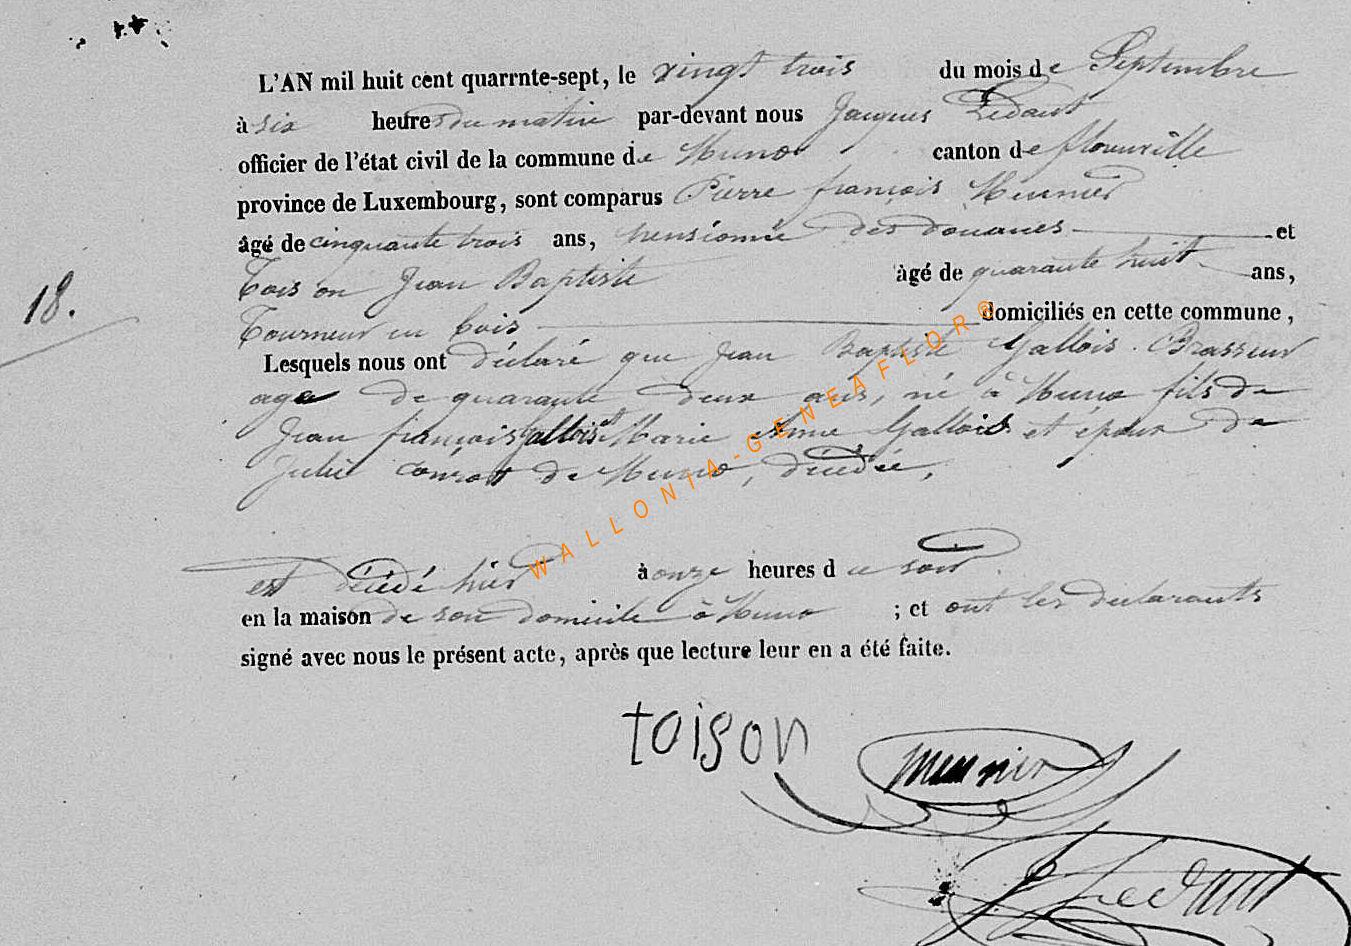 L'AN mil huit cent quarrnte-sept, le vingt trois du mois de Septembre
à six heures du matin par-devant nous Jacques Ledant
officier de l'état civil de la commune de Muno canton de florenville
province de Luxembourg, sont comparus Pierre françois Meunier
âgé de cinquante trois ans, pensionné des douanes et
Toison Jean Baptiste àgé de quarante huit ans,
Tourneur en bois domiciliés en cette commune,
18.
Lesquels nous ont déclaré que Jean Baptiste Gallois Brasseur
age de quarante deux ans, né à Muno fils de
Jean françois Gallois et Marie Anne Gallois et époux de
Julie de Muno, décédée,
est décédé hier à onze heures du soir
en la maison de son domicile à Muno ; et ont les declarants
signé avec nous le présent acte, après que lecture leur en a été faite.
toison
meunier
J Ledant
WALLONIA-GENEAFLOR®